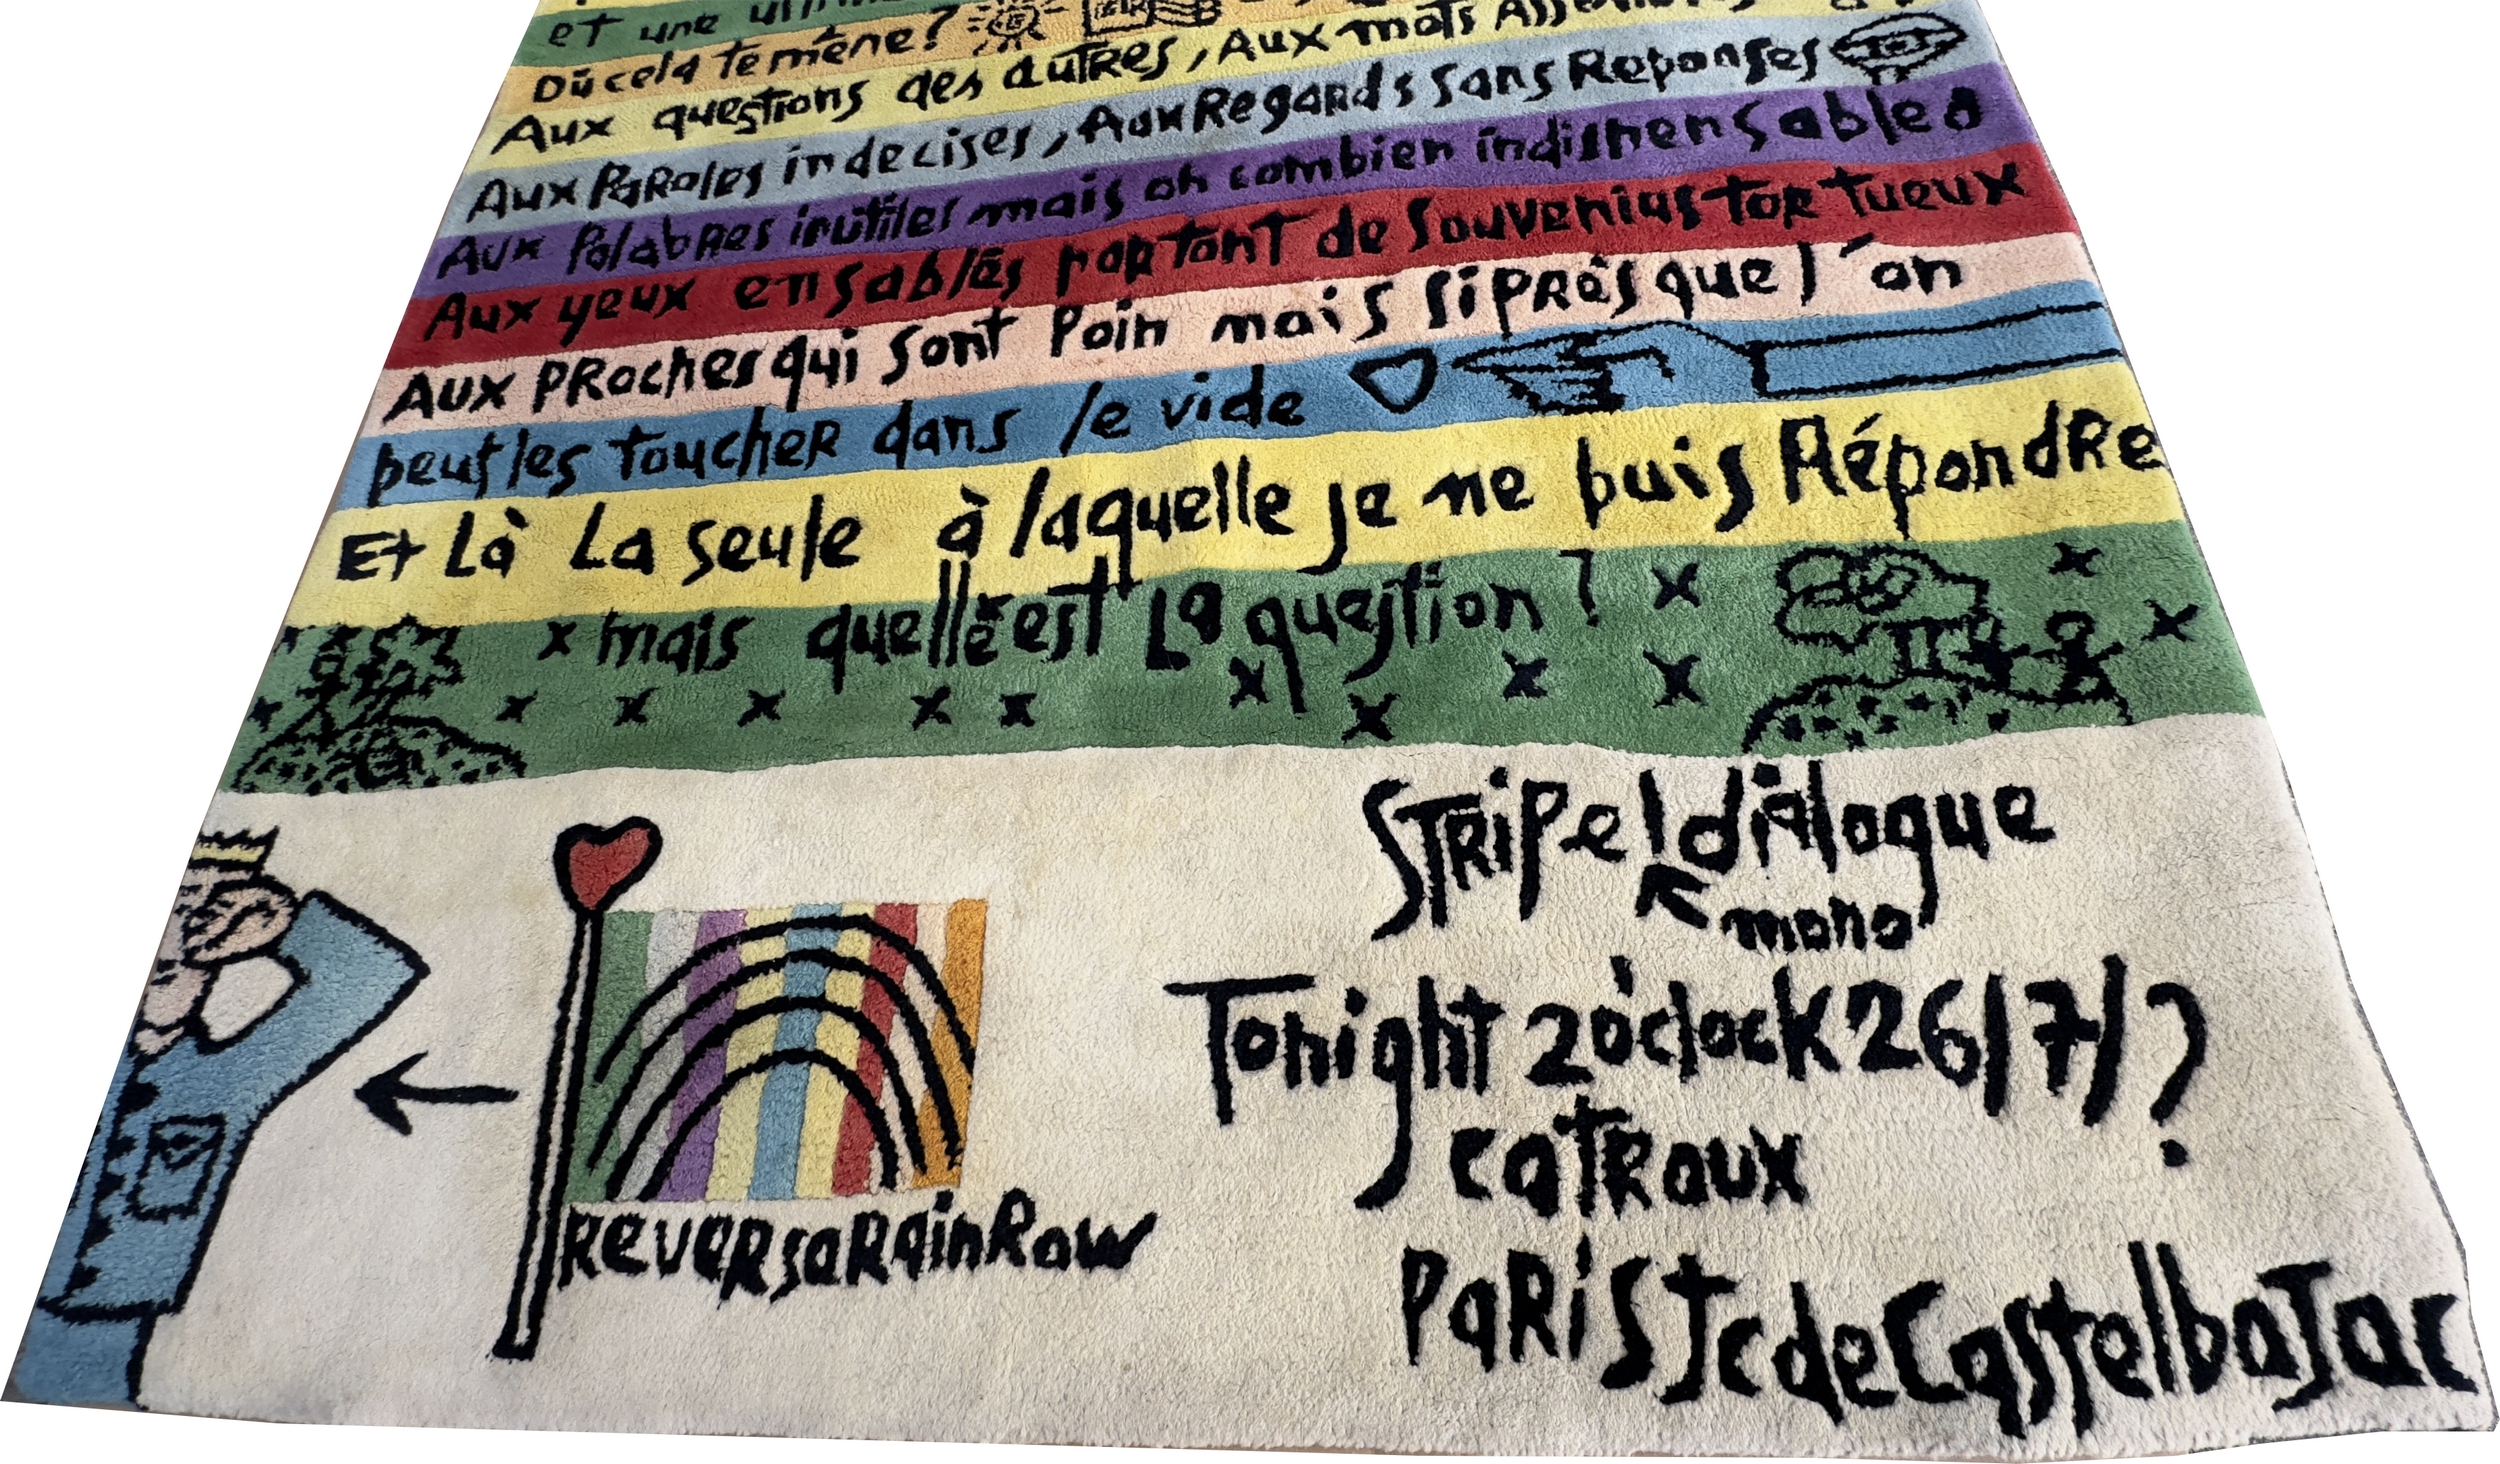 et une
Dû cela te mène?
Aux questions des autres, Aux mots
Aux PaRoles indecises, Aux Regards sans Reponses
Aux PalabRes inutiles mais oh combien indispensables
Aux yeux ensablés partant de souvenius tortueux
Aux PRoches qui sont Poin mais si pRès que l'on
peut les toucheR dans le vide
Et Là La seule à laquelle je ne puis RépondRe
x mais quelle est La question ?
STRiPe! dialogue
mono
Tonight 2 o'clock 26/7/?
catRoux
ReveRsaRainRow
PaRis Jc de CastelbaJac